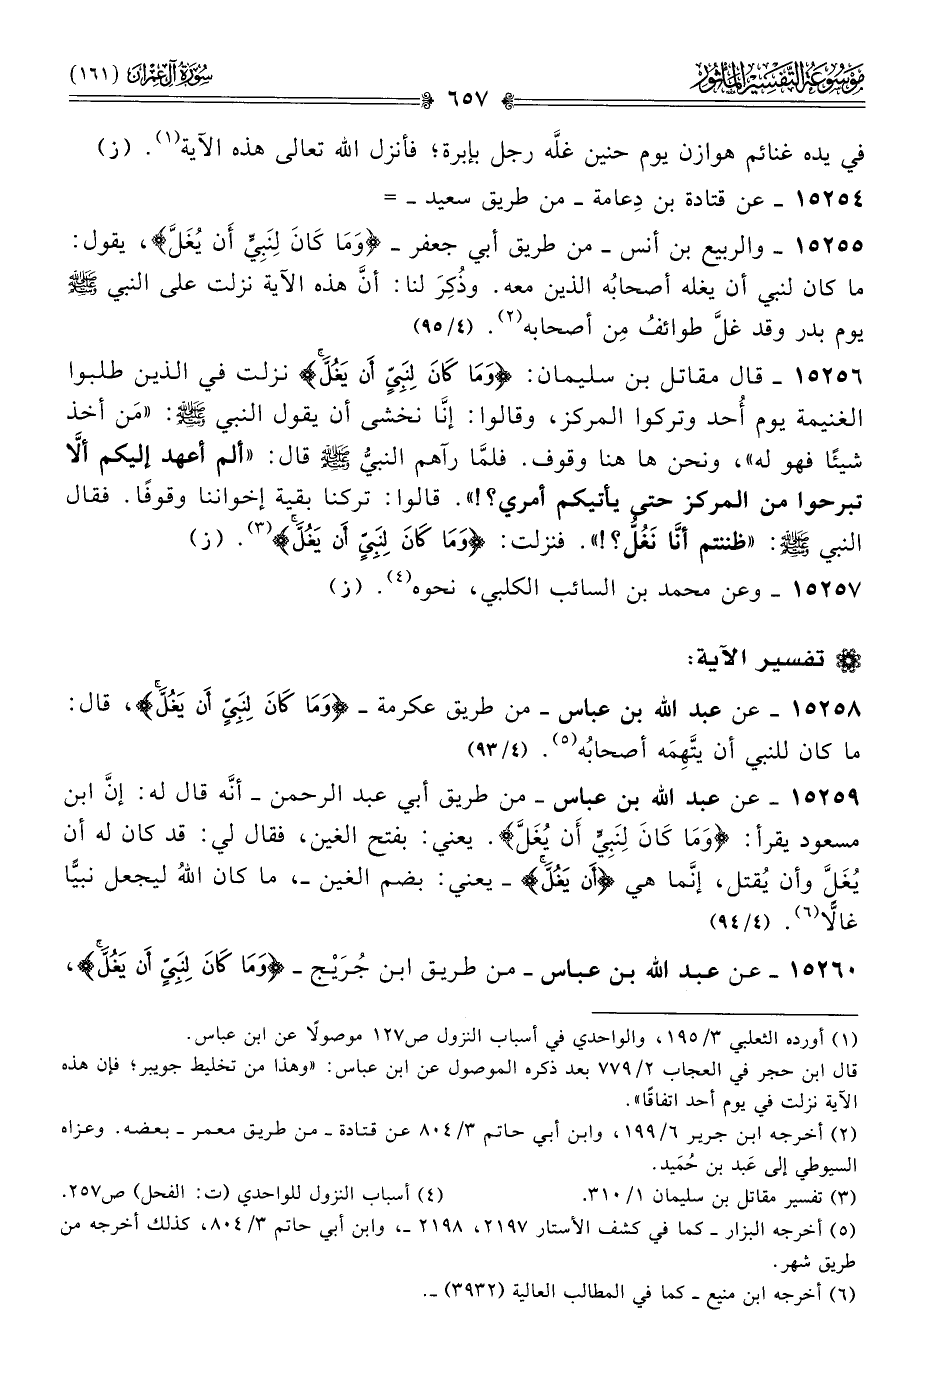 موسوعة التفسير المأثور
سورة آل عمران (١٦١)
٦٥٧
في يده غنائم هوازن يوم حنين غلَّه رجل بإبرة؛ فأنزل الله تعالى هذه الآية(١). (ز)
١٥٢٥٤ ـ عن قتادة بن دِعامة ـ من طريق سعيد ـ =
١٥٢٥٥ ـ والربيع بن أنس ـ من طريق أبي جعفر ـ ﴿وَمَا كَانَ لِنَبِيٍّ أَن يُغَلَّ﴾، يقول:
ما كان لنبي أن يغله أصحابُه الذين معه. وذُكِرَ لنا: أنَّ هذه الآية نزلت على النبي ﷺ
يوم بدر وقد غلَّ طوائفُ مِن أصحابه(٢). (٤/ ٩٥)
١٥٢٥٦ ـ قال مقاتل بن سليمان: ﴿وَمَا كَانَ لِنَبِيٍّ أَن يَغُلَّ﴾ نزلت في الذين طلبوا
الغنيمة يوم أُحد وتركوا المركز، وقالوا: إنَّا نخشى أن يقول النبي ﷺ: «مَن أخذ
شيئًا فهو له»، ونحن ها هنا وقوف. فلمَّا رآهم النبيُّ ﷺ قال: «ألم أعهد إليكم ألَّا
تبرحوا من المركز حتى يأتيكم أمري؟!». قالوا: تركنا بقية إخواننا وقوفًا. فقال
النبي ﷺ: «ظننتم أنَّا نَغُلُّ؟!». فنزلت: ﴿وَمَا كَانَ لِنَبِيٍّ أَن يَغُلَّ﴾(٣). (ز)
١٥٢٥٧ ـ وعن محمد بن السائب الكلبي، نحوه(٤). (ز)
تفسير الآية:
١٥٢٥٨ ـ عن عبد الله بن عباس ـ من طريق عكرمة ـ ﴿وَمَا كَانَ لِنَبِيٍّ أَن يَغُلَّ﴾، قال:
ما كان للنبي أن يتَّهِمَه أصحابُه(٥). (٤/ ٩٣)
١٥٢٥٩ ـ عن عبد الله بن عباس ـ من طريق أبي عبد الرحمن ـ أنَّه قال له: إنَّ ابن
مسعود يقرأ: ﴿وَمَا كَانَ لِنَبِيٍّ أَن يُغَلَّ﴾. يعني: بفتح الغين، فقال لي: قد كان له أن
يُغَلَّ وأن يُقتل، إنَّما هي ﴿أَن يَغُلَّ﴾ ـ يعني: بضم الغين ـ، ما كان اللهُ ليجعل نبيًّا
غالًّا(٦). (٤/ ٩٤)
١٥٢٦٠ ـ عن عبد الله بن عباس ـ من طريق ابن جُرَيْج ـ ﴿وَمَا كَانَ لِنَبِيٍّ أَن يَغُلَّ﴾،
(١) أورده الثعلبي ٣/ ١٩٥، والواحدي في أسباب النزول ص١٢٧ موصولًا عن ابن عباس.
قال ابن حجر في العجاب ٢/ ٧٧٩ بعد ذكره الموصول عن ابن عباس: «وهذا من تخليط جويبر؛ فإن هذه
الآية نزلت في يوم أحد اتفاقًا».
(٢) أخرجه ابن جرير ٦/ ١٩٩، وابن أبي حاتم ٣/ ٨٠٤ عن قتادة ـ من طريق معمر ـ بعضه. وعزاه
السيوطي إلى عَبد بن حُمَيد.
(٣) تفسير مقاتل بن سليمان ١/ ٣١٠. (٤) أسباب النزول للواحدي (ت: الفحل) ص٢٥٧.
(٥) أخرجه البزار ـ كما في كشف الأستار ٢١٩٧، ٢١٩٨ ـ، وابن أبي حاتم ٣/ ٨٠٤، كذلك أخرجه من
طريق شهر.
(٦) أخرجه ابن منيع ـ كما في المطالب العالية (٣٩٣٢) ـ.